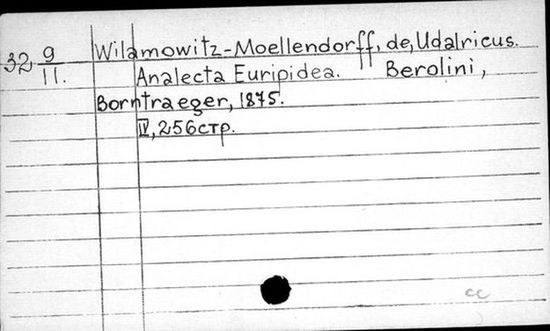 32 9/11. Wilamowitz-Moellendorff, de, Udalricus.
Analecta Euripidea. Berolini,
Borntraeger, 1875.
IV, 256 стр.
cc